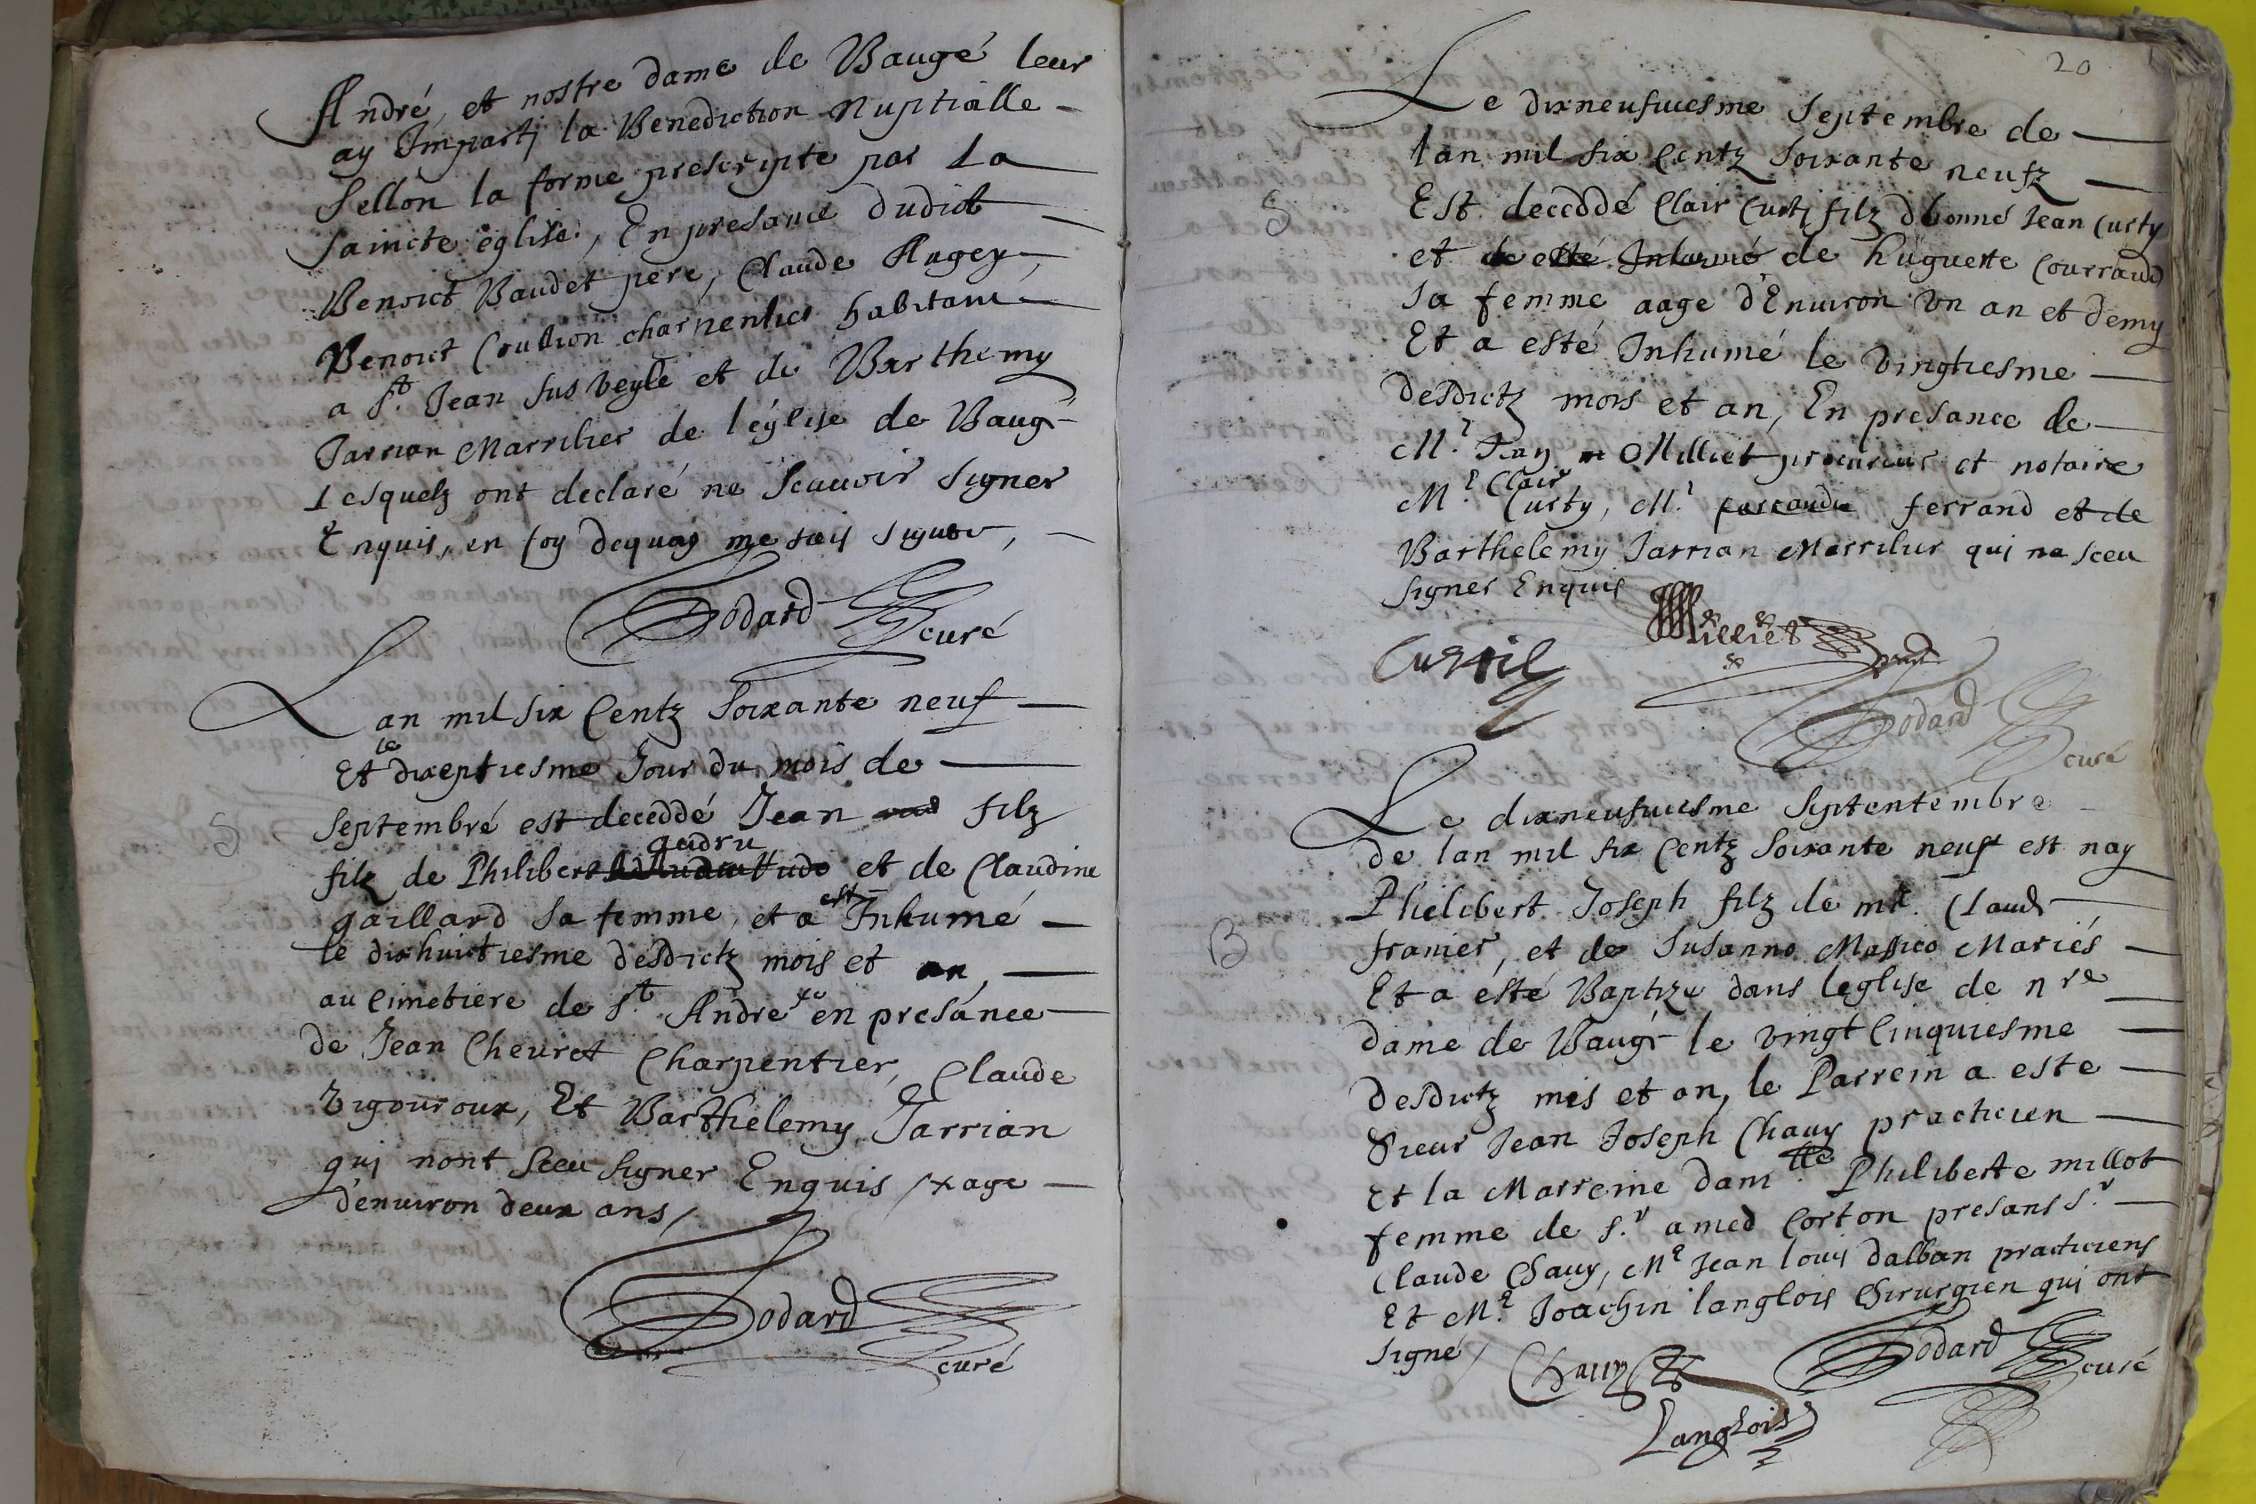 André, et nostre dame de Baugé leur
ay Imparti la Benediction Nuptialle
Sellon la forme prescripte par La
saincte eglise, En presance dudict
Benoict Baudet pere, Claude Augey,
Benoict Coullion charpentier habitant
a St. Jean sus veyle et de Barthemy
Jarrian Marrilier de léglise de Baugé
Lesquelz ont declaré ne Scavoir signer
Enquis, en foy dequoy me suis signé,
Godard
curé
Lan mil six Centz Soixante neuf
Et le dixeptiesme Jour du mois de
S
Septembré est deceddé Jean filz
filz de Philibert gudru et de Claudine
gaillard sa femme, et a est Inhumé
le dixhuictiesme desdictz mois et an,
au Cimetiere de St. André x en presánce
de Jean Cheuret Charpentier, Claude
Vigouroux, Et Barthelemy Jarrian
qui nont Sceu signer Enquis / x age
d'enuiron deux ans /
Godard
curé
20
Le dixneufuiesme Septembre de
lan mil six Centz Soixante neufz
S
Est deceddé Clair Curti filz dhonné Jean Curty
et de húguette Courraud
sa femme aage d'Enuiron Vn an et demy
Et a esté Inhumé le Vingtiesme
desdictz mois et an, En presance de
M.e Jean Milliet procureur et notaire
M.e Clair Curty, M.e ferrand et de
Barthelemy Jarrian Marrilier qui na sceu
signer Enquis
Milliet
Curtil
Godard
curé
Le dixneufuiesme Septentembre
de lan mil six Centz Soixante neuf est nay
Philibert Joseph filz de me. Claude
B
franier, et de Susanne Massico Mariés
Et a esté Baptizé dans leglise de nre
dame de Baugé le vingt Cinquiesme
desdictz mis et an, le Parrein a este
Sieur Jean Joseph Chauy practicien
Et la Marreine damlle. Philiberte millot
femme de S.r amed Corton presans S.r
Claude Chauy, M.e Jean louis dalban practiciens
Et M.e Joachin langlois Chirurgien qui ont
signé /
Chauy
Godard
curé
Langlois